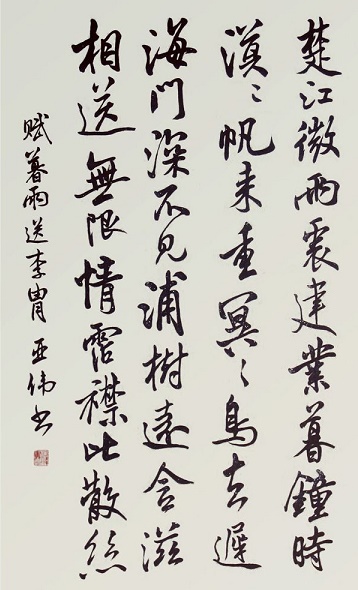 楚江微雨裏建業暮鐘時
漠々帆来重冥々鳥去遲
海門深不见浦樹遠含滋
相送無限情霑襟比散絲
賦暮雨送李胄 亚伟书